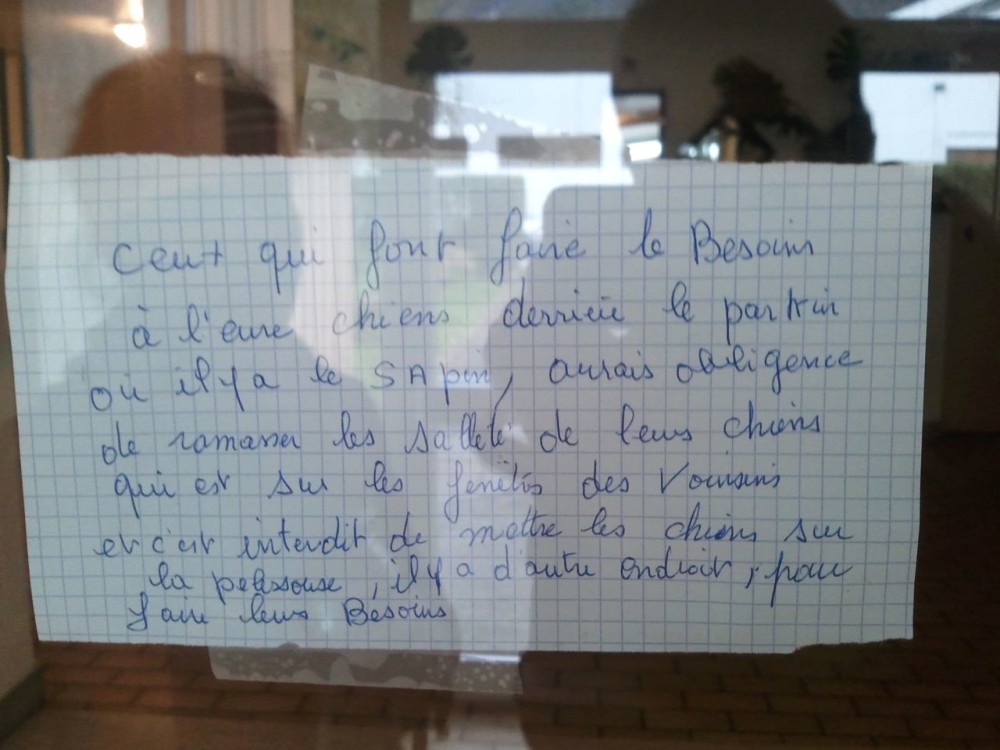 ceux qui font faire le Besoins
à l'eure chiens derrière le parkin
où il y a le SApin, aurais obligence
de ramasser les salleté de leurs chiens
qui est sur les fenêtres des Voisins
et c'est interdit de mettre les chiens sur
la pelssouse, il y a d'autre endroit, pour
faire leurs Besoins